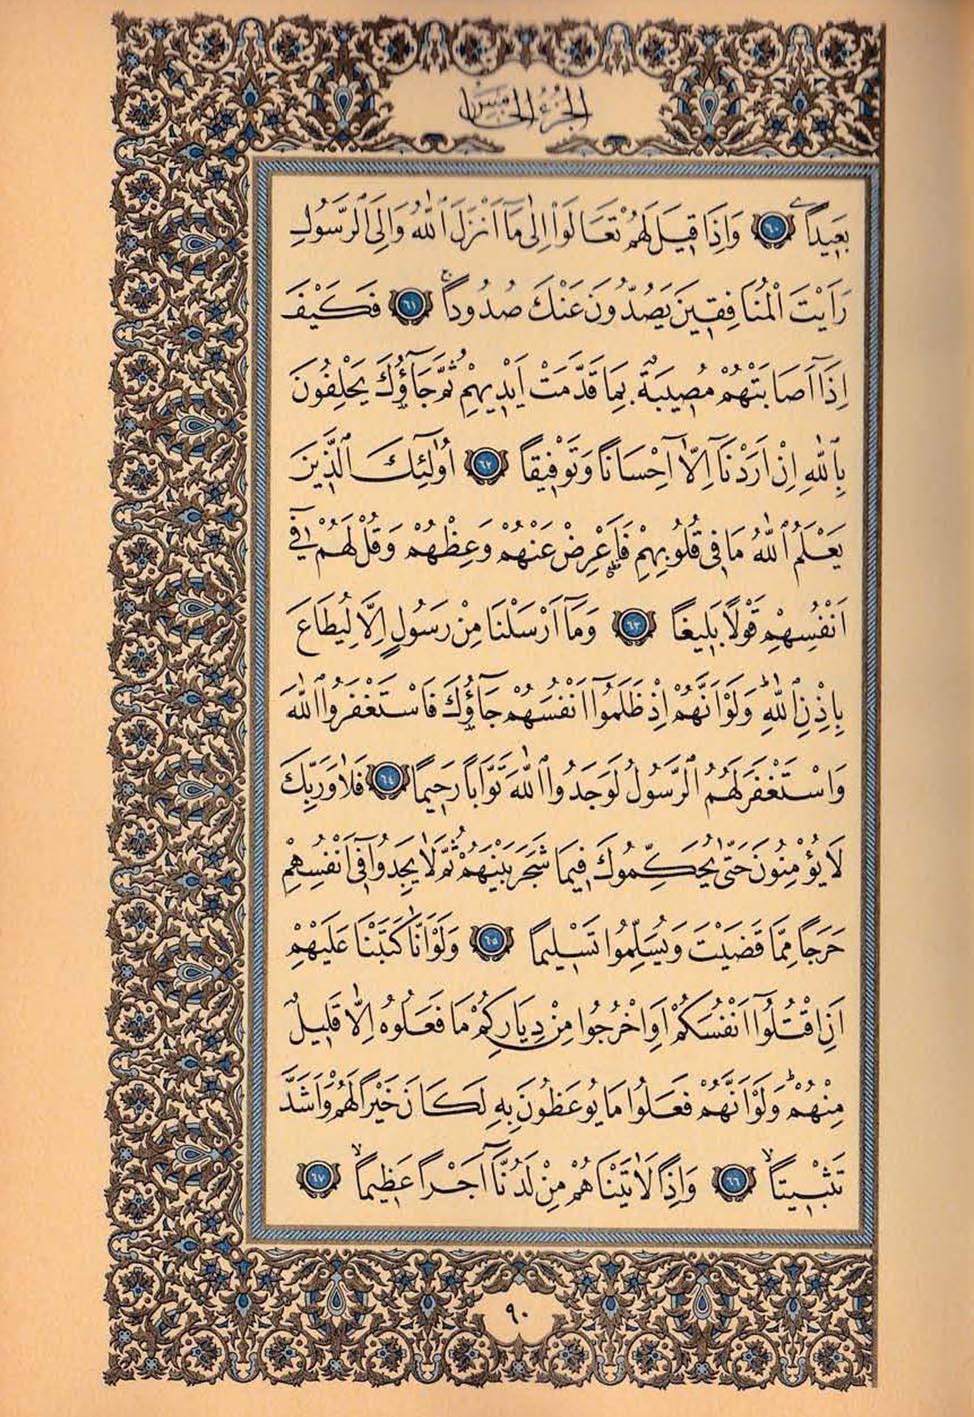 الجزء الخامس
بَعِيدًا ٦٠ وَاِذَا قِيلَ لَهُمْ تَعَالَوْا اِلٰى مَآ اَنْزَلَ ٱللّٰهُ وَاِلَى ٱلرَّسُولِ
رَاَيْتَ الْمُنَافِقِينَ يَصُدُّونَ عَنْكَ صُدُودًاۚ ٦١ فَكَيْفَ
اِذَآ اَصَابَتْهُمْ مُصِيبَةٌ بِمَا قَدَّمَتْ اَيْدِيهِمْ ثُمَّ جَآؤُكَ يَحْلِفُونَ
بِٱللّٰهِ اِنْ اَرَدْنَآ اِلَّآ اِحْسَانًا وَتَوْفِيقًا ٦٢ اُولٰٓئِكَ ٱلَّذِينَ
يَعْلَمُ ٱللّٰهُ مَا فِى قُلُوبِهِمْ فَاَعْرِضْ عَنْهُمْ وَعِظْهُمْ وَقُلْ لَهُمْ فِىٓ
اَنْفُسِهِمْ قَوْلًا بَلِيغًا ٦٣ وَمَآ اَرْسَلْنَا مِنْ رَسُولٍ اِلَّا لِيُطَاعَ
بِاِذْنِ ٱللّٰهِۜ وَلَوْ اَنَّهُمْ اِذْ ظَلَمُوٓا اَنْفُسَهُمْ جَآؤُكَ فَاسْتَغْفَرُوا ٱللّٰهَ
وَاسْتَغْفَرَ لَهُمُ ٱلرَّسُولُ لَوَجَدُوا ٱللّٰهَ تَوَّابًا رَحِيمًا ٦٤ فَلَا وَرَبِّكَ
لَا يُؤْمِنُونَ حَتّٰى يُحَكِّمُوكَ فِيمَا شَجَرَ بَيْنَهُمْ ثُمَّ لَا يَجِدُوا فِىٓ اَنْفُسِهِمْ
حَرَجًا مِمَّا قَضَيْتَ وَيُسَلِّمُوا تَسْلِيمًا ٦٥ وَلَوْ اَنَّا كَتَبْنَا عَلَيْهِمْ
اَنِ اقْتُلُوٓا اَنْفُسَكُمْ اَوِ اخْرُجُوا مِنْ دِيَارِكُمْ مَا فَعَلُوهُ اِلَّا قَلِيلٌ
مِنْهُمْۜ وَلَوْ اَنَّهُمْ فَعَلُوا مَا يُوعَظُونَ بِهِ لَكَانَ خَيْرًا لَهُمْ وَاَشَدَّ
تَثْبِيتًاۙ ٦٦ وَاِذًا لَاٰتَيْنَاهُمْ مِنْ لَدُنَّآ اَجْرًا عَظِيمًاۙ ٦٧
٩٠